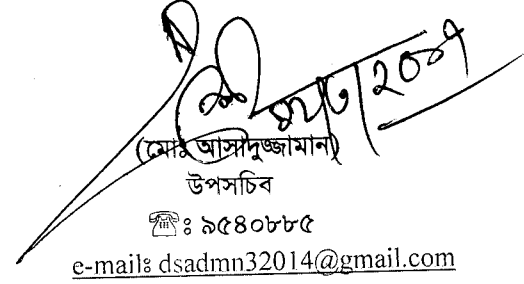 (মোঃ আসাদুজ্জামান)
উপসচিব
☎ঃ ৯৫৪০৮৮৫
e-mailঃ dsadmn32014@gmail.com